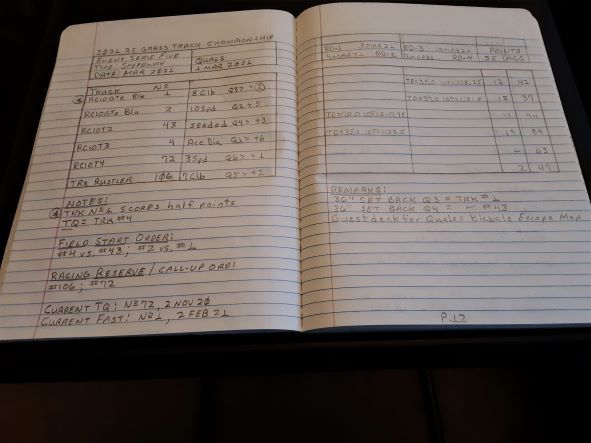 2021 BC GRASS TRACK CHAMPIONSHIP
EVENT SERIE FIVE
TYPE: SPEEDWAY
DATE: MAR 2021
QUALS
1 MAR 2021
TRUCK Nº
RC10GTe Blk 1 8 Clb Q3>
RC10GTe Blu 2 10Spd Q2 + 5
RC10T2 43 Seeded Q4> +3
RC10T3 4 Ace Dia Q1> +6
RC10T4 72 3Spd Q6> +1
TRX RUSTLER 106 7Clb Q5> +2
NOTES:
TRK Nº1 SCORES half points
TQ= TRK #4
FIELD START ORDER:
#4 vs. #43; #2 vs. #1
RACING RESERVE / CALL-UP ORD:
#106; #72
CURRENT TQ: Nº72, 2 NOV 20
CURRENT FAST: Nº1, 2 FEB 21
RD-1 3MAR21 RD-3 POINTS
4MAR21 RD-2 RD-4 S5 AGG
12 42
12 37
11 44
19 84
- 63
2 49
REMARKS:
36" SET BACK Q3 = TRK #1
36" SET BACK Q4 = #43
Guest deck for Quals= Bicycle Escape Map
P.12